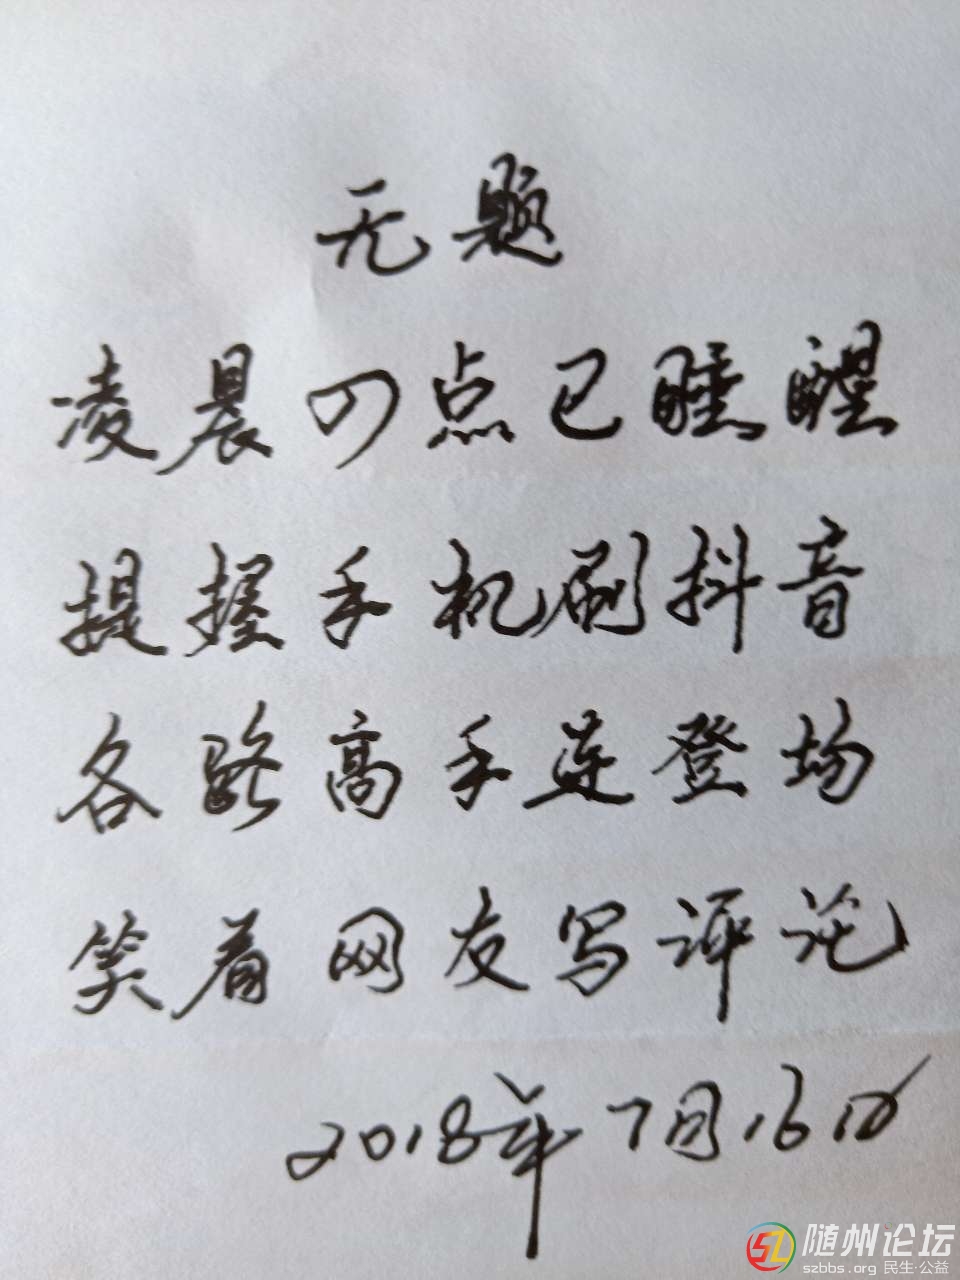 无题
凌晨四点已睡醒
提握手机刷抖音
各路高手连登场
笑着网友写评论
2018年7月16日
随州论坛
szbbs.org 民生·公益